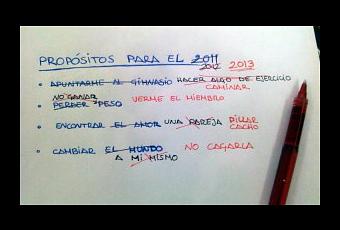 PROPÓSITOS PARA EL 2011
2012 2013
APUNTARME AL GIMNASIO HACER ALGO DE EJERCICIO
CAMINAR
NO GANAR
PERDER PESO VERME EL MIEMBRO
ENCONTRAR EL AMOR UNA PAREJA PILLAR
CACHO
CAMBIAR EL MUNDO NO CAGARLA
A MI MISMO